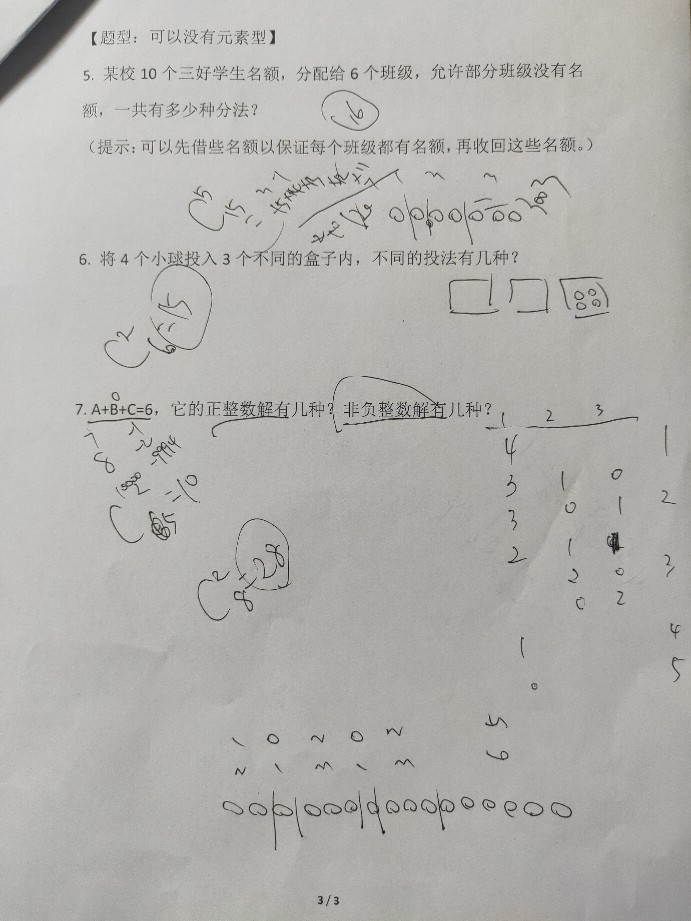 【题型：可以没有元素型】
5. 某校 10 个三好学生名额，分配给 6 个班级，允许部分班级没有名
额，一共有多少种分法？
（提示：可以先借些名额以保证每个班级都有名额，再收回这些名额。）
C 5 15 =
6. 将 4 个小球投入 3 个不同的盒子内，不同的投法有几种？
C 2 6 = 15
7. A+B+C=6，它的正整数解有几种？非负整数解有几种？
1 2 3
4 1
3 1 0
3 0 1 2
2 1
2 0 3
0 2
C 2 5 = 10
C 2 8 = 28
4
1 5
0
1 0 2 0 2 5
2 1 3 1 3 6
3 / 3